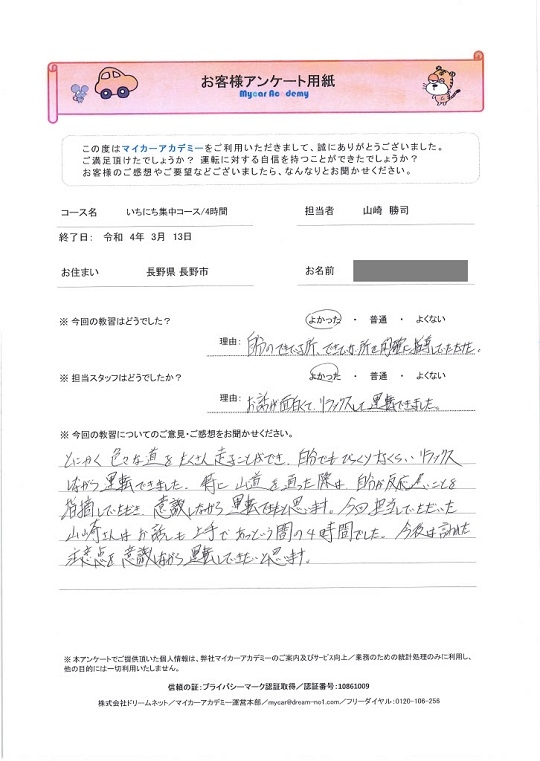 お客様アンケート用紙
Mycar Academy
この度はマイカーアカデミーをご利用いただきまして、誠にありがとうございました。
ご満足頂けたでしょうか？ 運転に対する自信を持つことができたでしょうか？
お客様のご感想やご要望などございましたら、なんなりとお聞かせください。
コース名 いちにち集中コース/4時間 担当者 山崎 勝司
終了日： 令和 4年 3月 13日
お住まい 長野県 長野市 お名前
※ 今回の教習はどうでした？ よかった ・ 普通 ・ よくない
理由： 自分のできている所、できていない所を明確に指導していただけた。
※ 担当スタッフはどうでしたか？ よかった ・ 普通 ・ よくない
理由： お話が面白くて、リラックスして運転できました。
※ 今回の教習についてのご意見・ご感想をお聞かせください。
とにかく色々な道をたくさん走ることができ、自分でもびっくりするくらい、リラックス
しながら運転できました。特に山道を通った際は自分が反応 ことを
指摘していただき、意識しながら運転できたと思います。今回担当していただいた
山崎さんはお話しも上手であっという間の4時間でした。今後は言われた
注意点を意識しながら運転していきたいと思います。
※ 本アンケートでご提供頂いた個人情報は、弊社マイカーアカデミーのご案内及びサービス向上／業務のための統計処理のみに利用し、
他の目的には一切利用いたしません。
信頼の証：プライバシーマーク認証取得／認証番号：10861009
株式会社ドリームネット／マイカーアカデミー運営本部／mycar@dream-no1.com／フリーダイヤル：0120-106-256